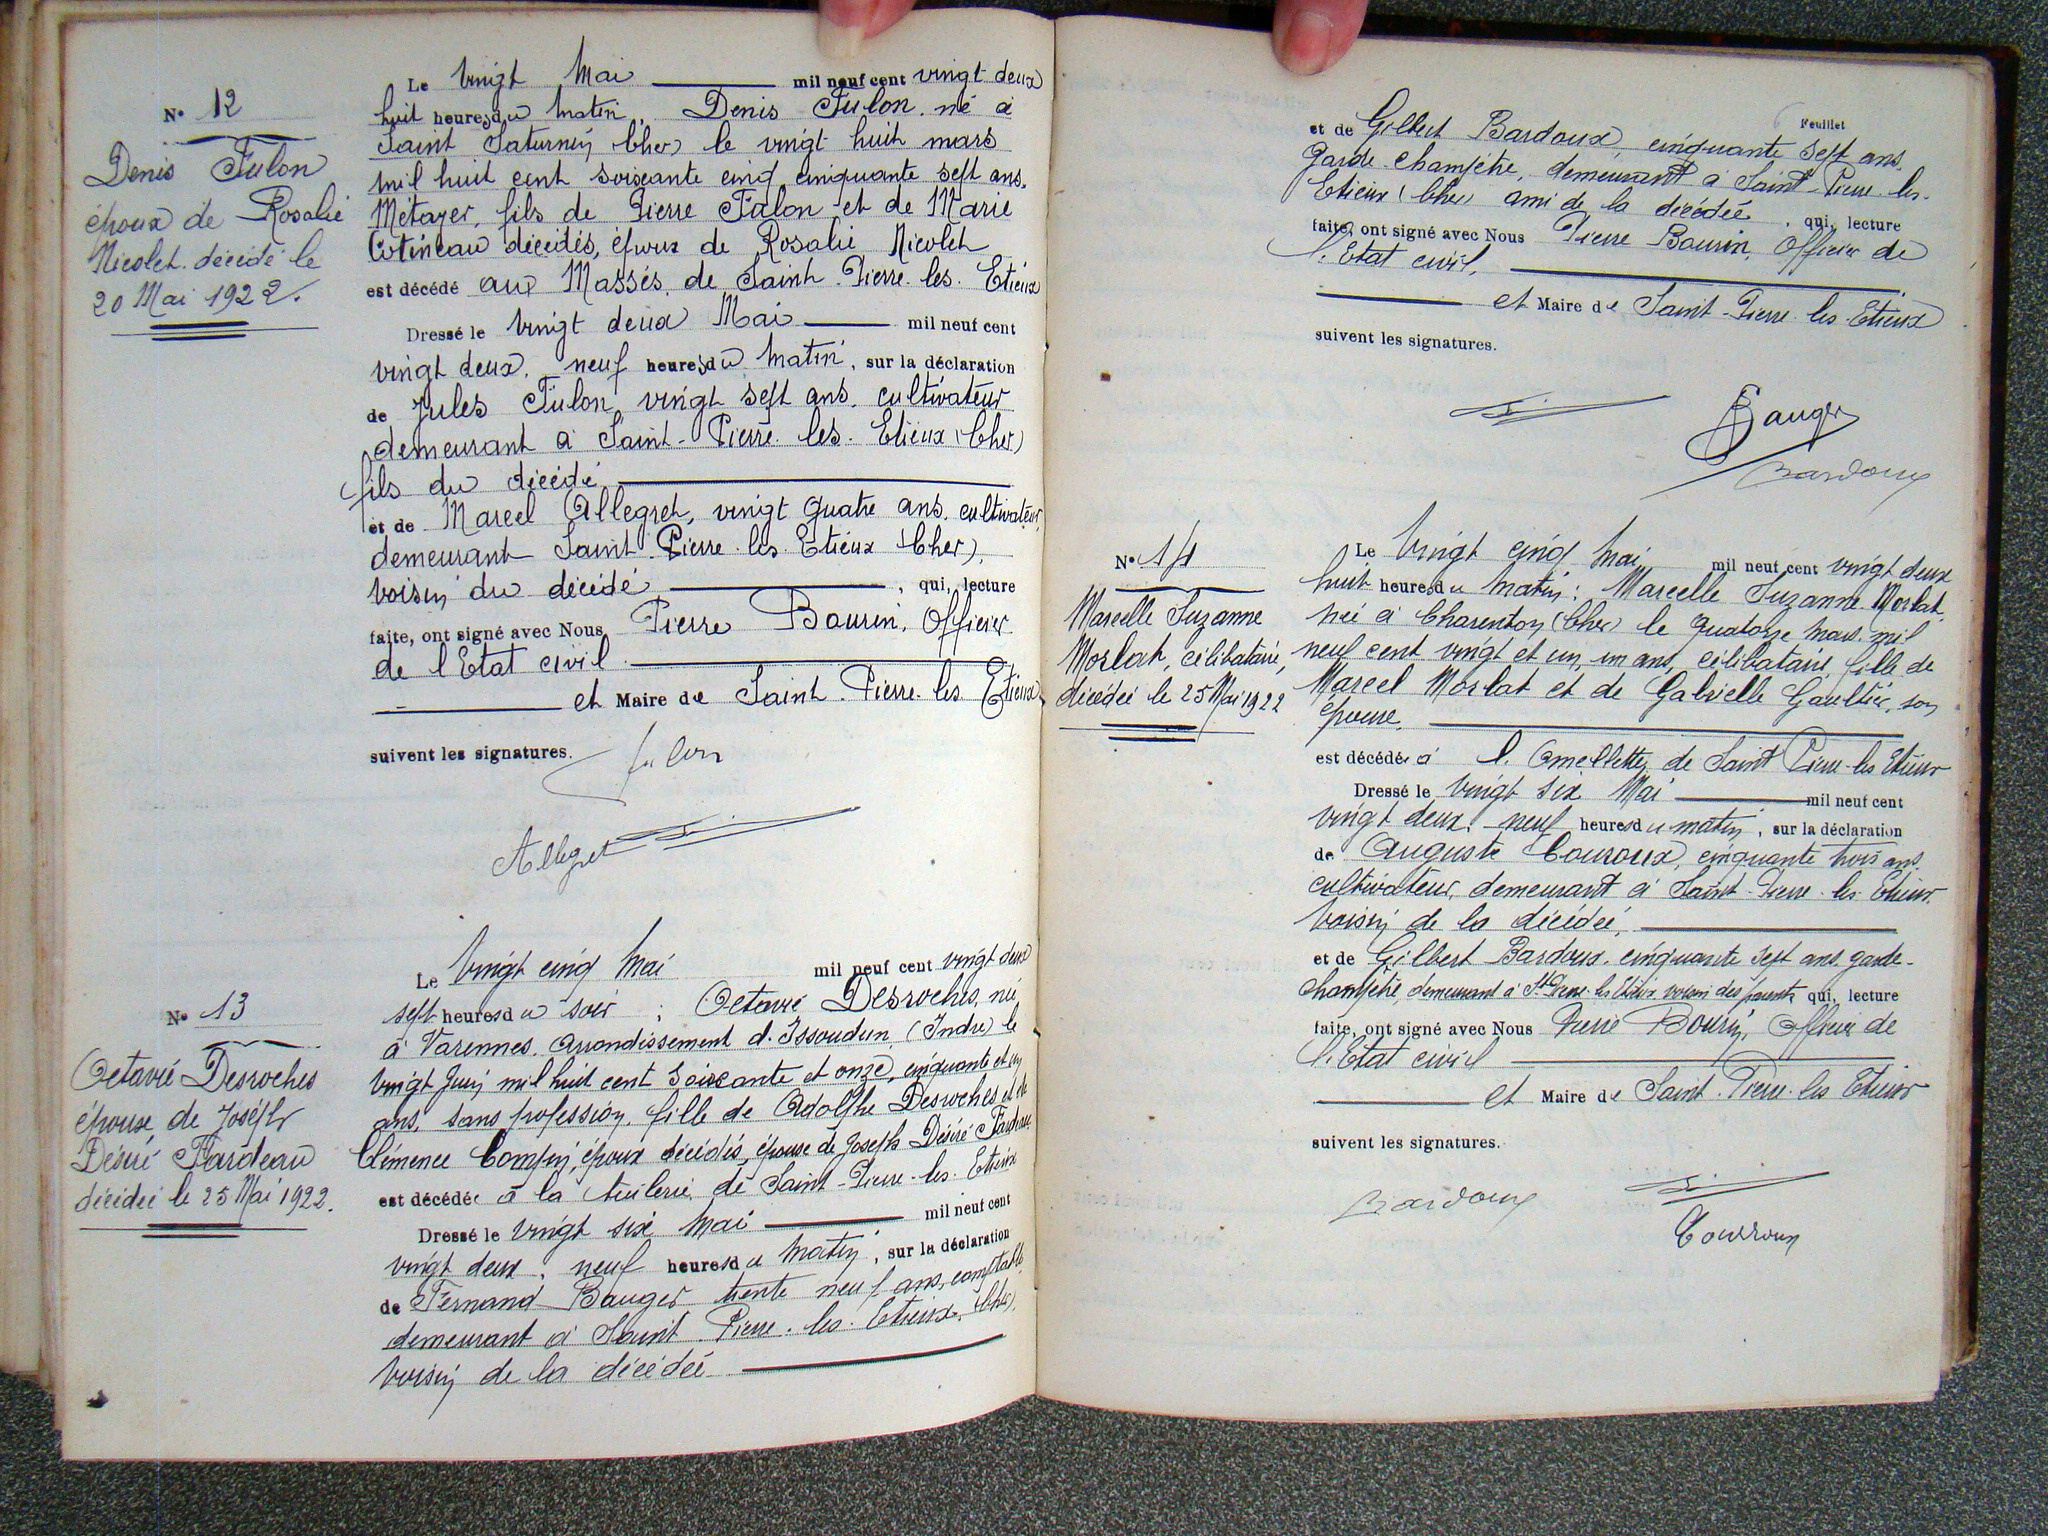 N° 12
Denis Fulon
époux de Rosalie
Nicolet décédé le
20 Mai 1922.
Le Vingt Mai mil neuf cent vingt deux
huit heures du matin, Denis Fulon né à
Saint Saturnin (Cher) le vingt huit mars
mil huit cent soixante cinq cinquante sept ans,
Métayer, fils de Pierre Fulon et de Marie
Cotineau décédés, époux de Rosalie Nicolet
est décédé aux Massés de Saint-Pierre-les-Etieux
Dressé le Vingt deux Mai mil neuf cent
vingt deux, neuf heures du matin, sur la déclaration
de Jules Fulon vingt sept ans, cultivateur
demeurant à Saint-Pierre-les-Etieux (Cher)
fils du décédé
et de Marcel Allegret, vingt quatre ans, cultivateur,
demeurant Saint-Pierre-les-Etieux (Cher),
voisin du décédé, qui, lecture
faite, ont signé avec Nous Pierre Bourin, Officier
de l'Etat civil
et Maire de Saint-Pierre-les-Etieux
suivent les signatures.
fulon
Allegret
N° 13
Octavie Desroches
épouse de Joseph
Désiré Fardeau
décédée le 25 Mai 1922.
Le Vingt cinq Mai mil neuf cent vingt deux
sept heures du soir : Octavie Desroches, née
à Varennes, arrondissement d'Issoudun (Indre) le
vingt Juin mil huit cent soixante et onze, cinquante et un
ans, sans profession, fille de Adolphe Desroches et de
Clémence Compin, époux décédés, épouse de Joseph Désiré Fardeau
est décédée à la tuilerie de Saint-Pierre-les-Etieux
Dressé le vingt six Mai mil neuf cent
vingt deux, neuf heures du matin, sur la déclaration
de Fernand Bauger trente neuf ans, comptable
demeurant à Saint-Pierre-les-Etieux (Cher),
voisin de la décédée
Feuillet 6
et de Gilbert Bardoux, cinquante sept ans,
Garde-champêtre, demeurant à Saint-Pierre-les-
Etieux (Cher) ami de la décédée, qui, lecture
faite, ont signé avec Nous Pierre Bourin, Officier de
l'Etat civil,
et Maire de Saint-Pierre-les-Etieux
suivent les signatures.
Bauger
Bardoux
N° 14
Marcelle Suzanne
Morlat, célibataire,
décédée le 25 Mai 1922
Le Vingt cinq Mai mil neuf cent vingt deux
huit heures du matin : Marcelle Suzanne Morlat,
née à Charenton (Cher) le quatorze Mars mil
neuf cent vingt et un, un ans, célibataire, fille de
Marcel Morlat et de Gabrielle Gaultier, son
épouse,
est décédée à l'Omellette de Saint Pierre-les-Etieux
Dressé le vingt six Mai mil neuf cent
vingt deux, neuf heures du matin, sur la déclaration
de Auguste Couroux, cinquante trois ans
cultivateur, demeurant à Saint-Pierre-les-Etieux
voisin de la décédée,
et de Gilbert Bardoux, cinquante sept ans, garde-
champêtre, demeurant à St Pierre-les-Etieux voisin des parents, qui, lecture
faite, ont signé avec Nous Pierre Bourin, Officier de
l'Etat civil
et Maire de Saint-Pierre-les-Etieux
suivent les signatures.
Bardoux
Couroux